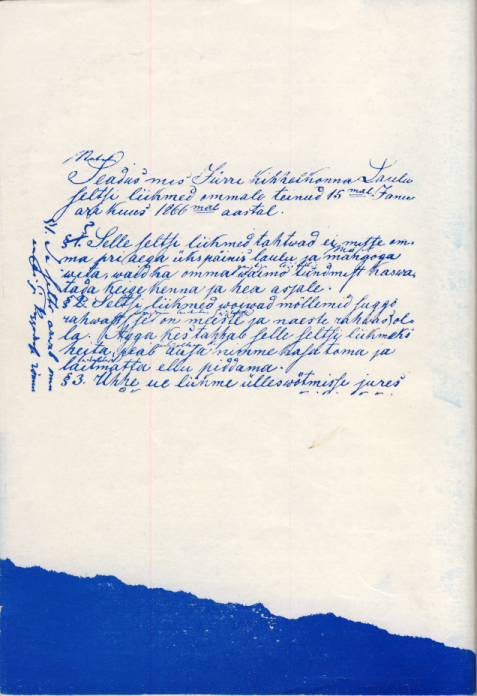 Seadus mis Jürri kihhelkonna Laulu
seltsi liikmed ommale teinud 15 mal Janu
ara kuus 1866 mal aastal.
§1. Selle seltsi liikmed tahtwad ei mitte om-
ma pri aega ükspäinis laulu ja mängoga
wita, waid ka omma waimo tundmist kaswa
tada keige kenna ja hea asjale.
§2. Seltsi liikmed woiwad mõllemid suggo
rahwast, se on meeste ja naeste rahwas, ol-
la. Agga kes tahhab selle seltsi liikmeks
heita, peab ausa nimme kasa toma ja
laitmatta ellu piddama.
§3. Uhhe ue liikme ülleswõtmisse jures